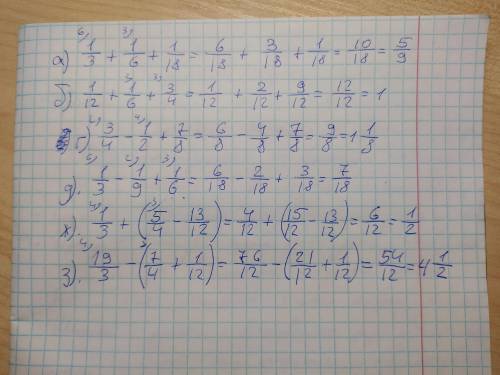 а) ⁶⁾1/3 + ³⁾1/6 + 1/18 = 6/18 + 3/18 + 1/18 = 10/18 = 5/9
б) 1/12 + ²⁾1/6 + ³⁾3/4 = 1/12 + 2/12 + 9/12 = 12/12 = 1
г) ²⁾3/4 - ⁴⁾1/2 + 7/8 = 6/8 - 4/8 + 7/8 = 9/8 = 1 1/8
д). ⁶⁾1/3 - ²⁾1/9 + ³⁾1/6 = 6/18 - 2/18 + 3/18 = 7/18
ж). ⁴⁾1/3 + (³⁾5/4 - 13/12) = 4/12 + (15/12 - 13/12) = 6/12 = 1/2
з). ⁴⁾19/3 - (³⁾7/4 + 1/12) = 76/12 - (21/12 + 1/12) = 54/12 = 4 1/2